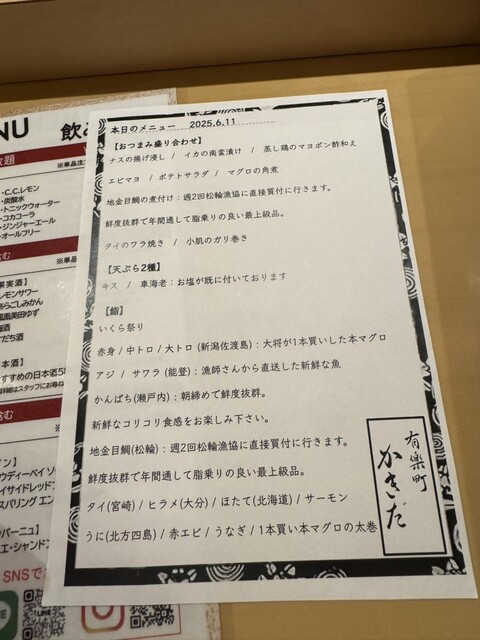 本日のメニュー 2025.6.11
【おつまみ盛り合わせ】
ナスの揚げ浸し / イカの南蛮漬け / 蒸し鶏のマヨポン酢和え
エビマヨ / ポテトサラダ / マグロの角煮
地金目鯛の煮付け:週2回松輪漁協に直接買付に行きます。
鮮度抜群で年間通して脂乗りの良い最上級品。
タイのワラ焼き / 小肌のガリ巻き
【天ぷら2種】
キス / 車海老:お塩が既に付いております
【鮨】
いくら祭り
赤身 / 中トロ / 大トロ (新潟佐渡島):大将が1本買いした本マグロ
アジ / サワラ (能登):漁師さんから直送した新鮮な魚
かんぱち(瀬戸内):朝締めで鮮度抜群。
新鮮なコリコリ食感をお楽しみ下さい。
地金目鯛(松輪):週2回松輪漁協に直接買付に行きます。
鮮度抜群で年間通して脂乗りの良い最上級品。
タイ(宮崎) / ヒラメ(大分) / ほたて(北海道) / サーモン
うに(北方四島) / 赤エビ / うなぎ / 1本買い本マグロの太巻
有楽町
かきだ
NU 飲み
放題
※単品注
・C.C.レモン
・炭酸水
・トニックウォーター
・コカコーラ
・ジンジャーエール
・オールフリー
含む
※単品
果実酒】
レモンサワー
あらごしみかん
鳳凰美田ゆず
梅酒
すだち酒
本酒】
すすめの日本酒5
詳細はスタッフにお尋ね
含む
イン】
ウディーベイ ソー
イサイドレッド
スパリング エン
ンパーニュ】
エ・シャンドン
SNSで
LINE